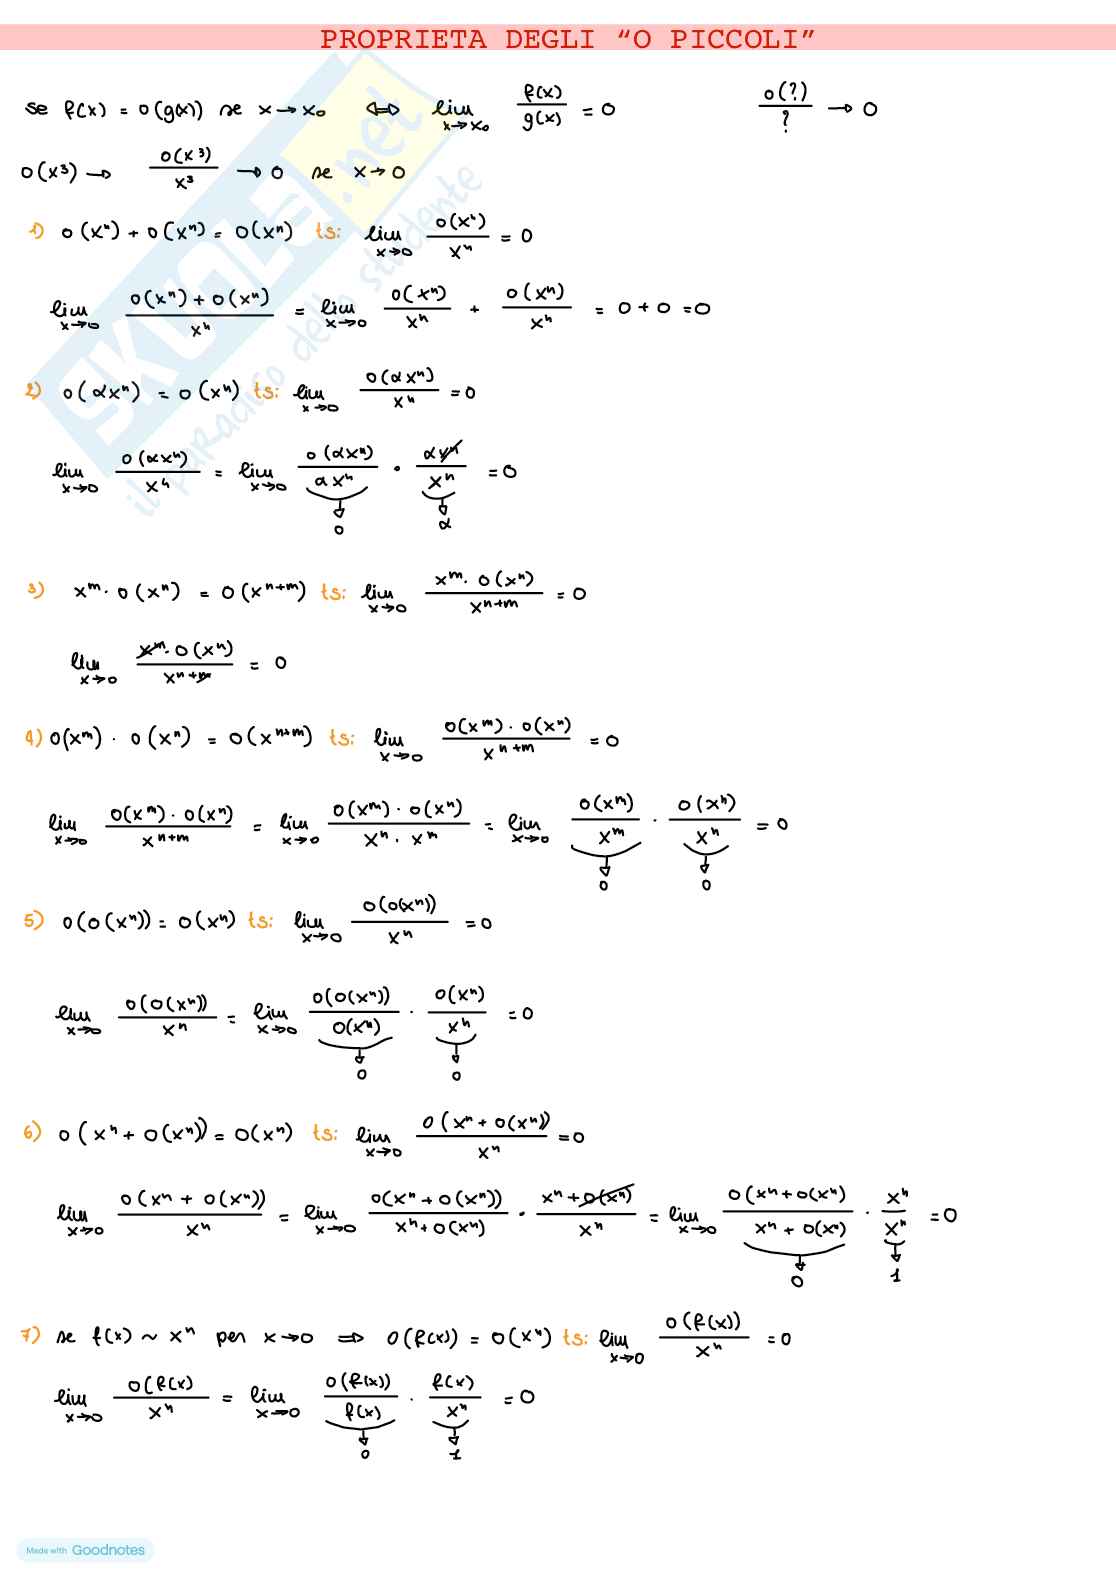 PROPRIETA DEGLI “O PICCOLI”
se f(x) = o(g(x)) se x→x₀ ⟺ lim x→x₀ f(x)/g(x) = 0 o(?)/? → 0
o(x³) → o(x³)/x³ → 0 se x→0
1) o(xⁿ) + o(xⁿ) = o(xⁿ) ts: lim x→0 o(xⁿ)/xⁿ = 0
lim x→0 (o(xⁿ) + o(xⁿ))/xⁿ = lim x→0 o(xⁿ)/xⁿ + o(xⁿ)/xⁿ = 0 + 0 = 0
2) o(αxⁿ) = o(xⁿ) ts: lim x→0 o(αxⁿ)/xⁿ = 0
lim x→0 o(αxⁿ)/xⁿ = lim x→0 o(αxⁿ)/αxⁿ · αxⁿ/xⁿ = 0
0 α
3) xᵐ · o(xⁿ) = o(xⁿ⁺ᵐ) ts: lim x→0 xᵐ · o(xⁿ)/xⁿ⁺ᵐ = 0
lim x→0 xᵐ · o(xⁿ)/xⁿ⁺ᵐ = 0
4) o(xᵐ) · o(xⁿ) = o(xⁿ⁺ᵐ) ts: lim x→0 o(xᵐ) · o(xⁿ)/xⁿ⁺ᵐ = 0
lim x→0 o(xᵐ) · o(xⁿ)/xⁿ⁺ᵐ = lim x→0 o(xᵐ) · o(xⁿ)/xⁿ · xᵐ = lim x→0 o(xᵐ)/xᵐ · o(xⁿ)/xⁿ = 0
0 0
5) o(o(xⁿ)) = o(xⁿ) ts: lim x→0 o(o(xⁿ))/xⁿ = 0
lim x→0 o(o(xⁿ))/xⁿ = lim x→0 o(o(xⁿ))/o(xⁿ) · o(xⁿ)/xⁿ = 0
0 0
6) o(xⁿ + o(xⁿ)) = o(xⁿ) ts: lim x→0 o(xⁿ + o(xⁿ))/xⁿ = 0
lim x→0 o(xⁿ + o(xⁿ))/xⁿ = lim x→0 o(xⁿ + o(xⁿ))/xⁿ + o(xⁿ) · xⁿ + o(xⁿ)/xⁿ = lim x→0 o(xⁿ + o(xⁿ)/xⁿ + o(xⁿ) · xⁿ/xⁿ = 0
0 1
7) se f(x) ~ xⁿ per x→0 ⟹ o(f(x)) = o(xⁿ) ts: lim x→0 o(f(x))/xⁿ = 0
lim x→0 o(f(x)/xⁿ = lim x→0 o(f(x))/f(x) · f(x)/xⁿ = 0
0 1
SKUOLA.net
il paradiso dello studente
Made with Goodnotes